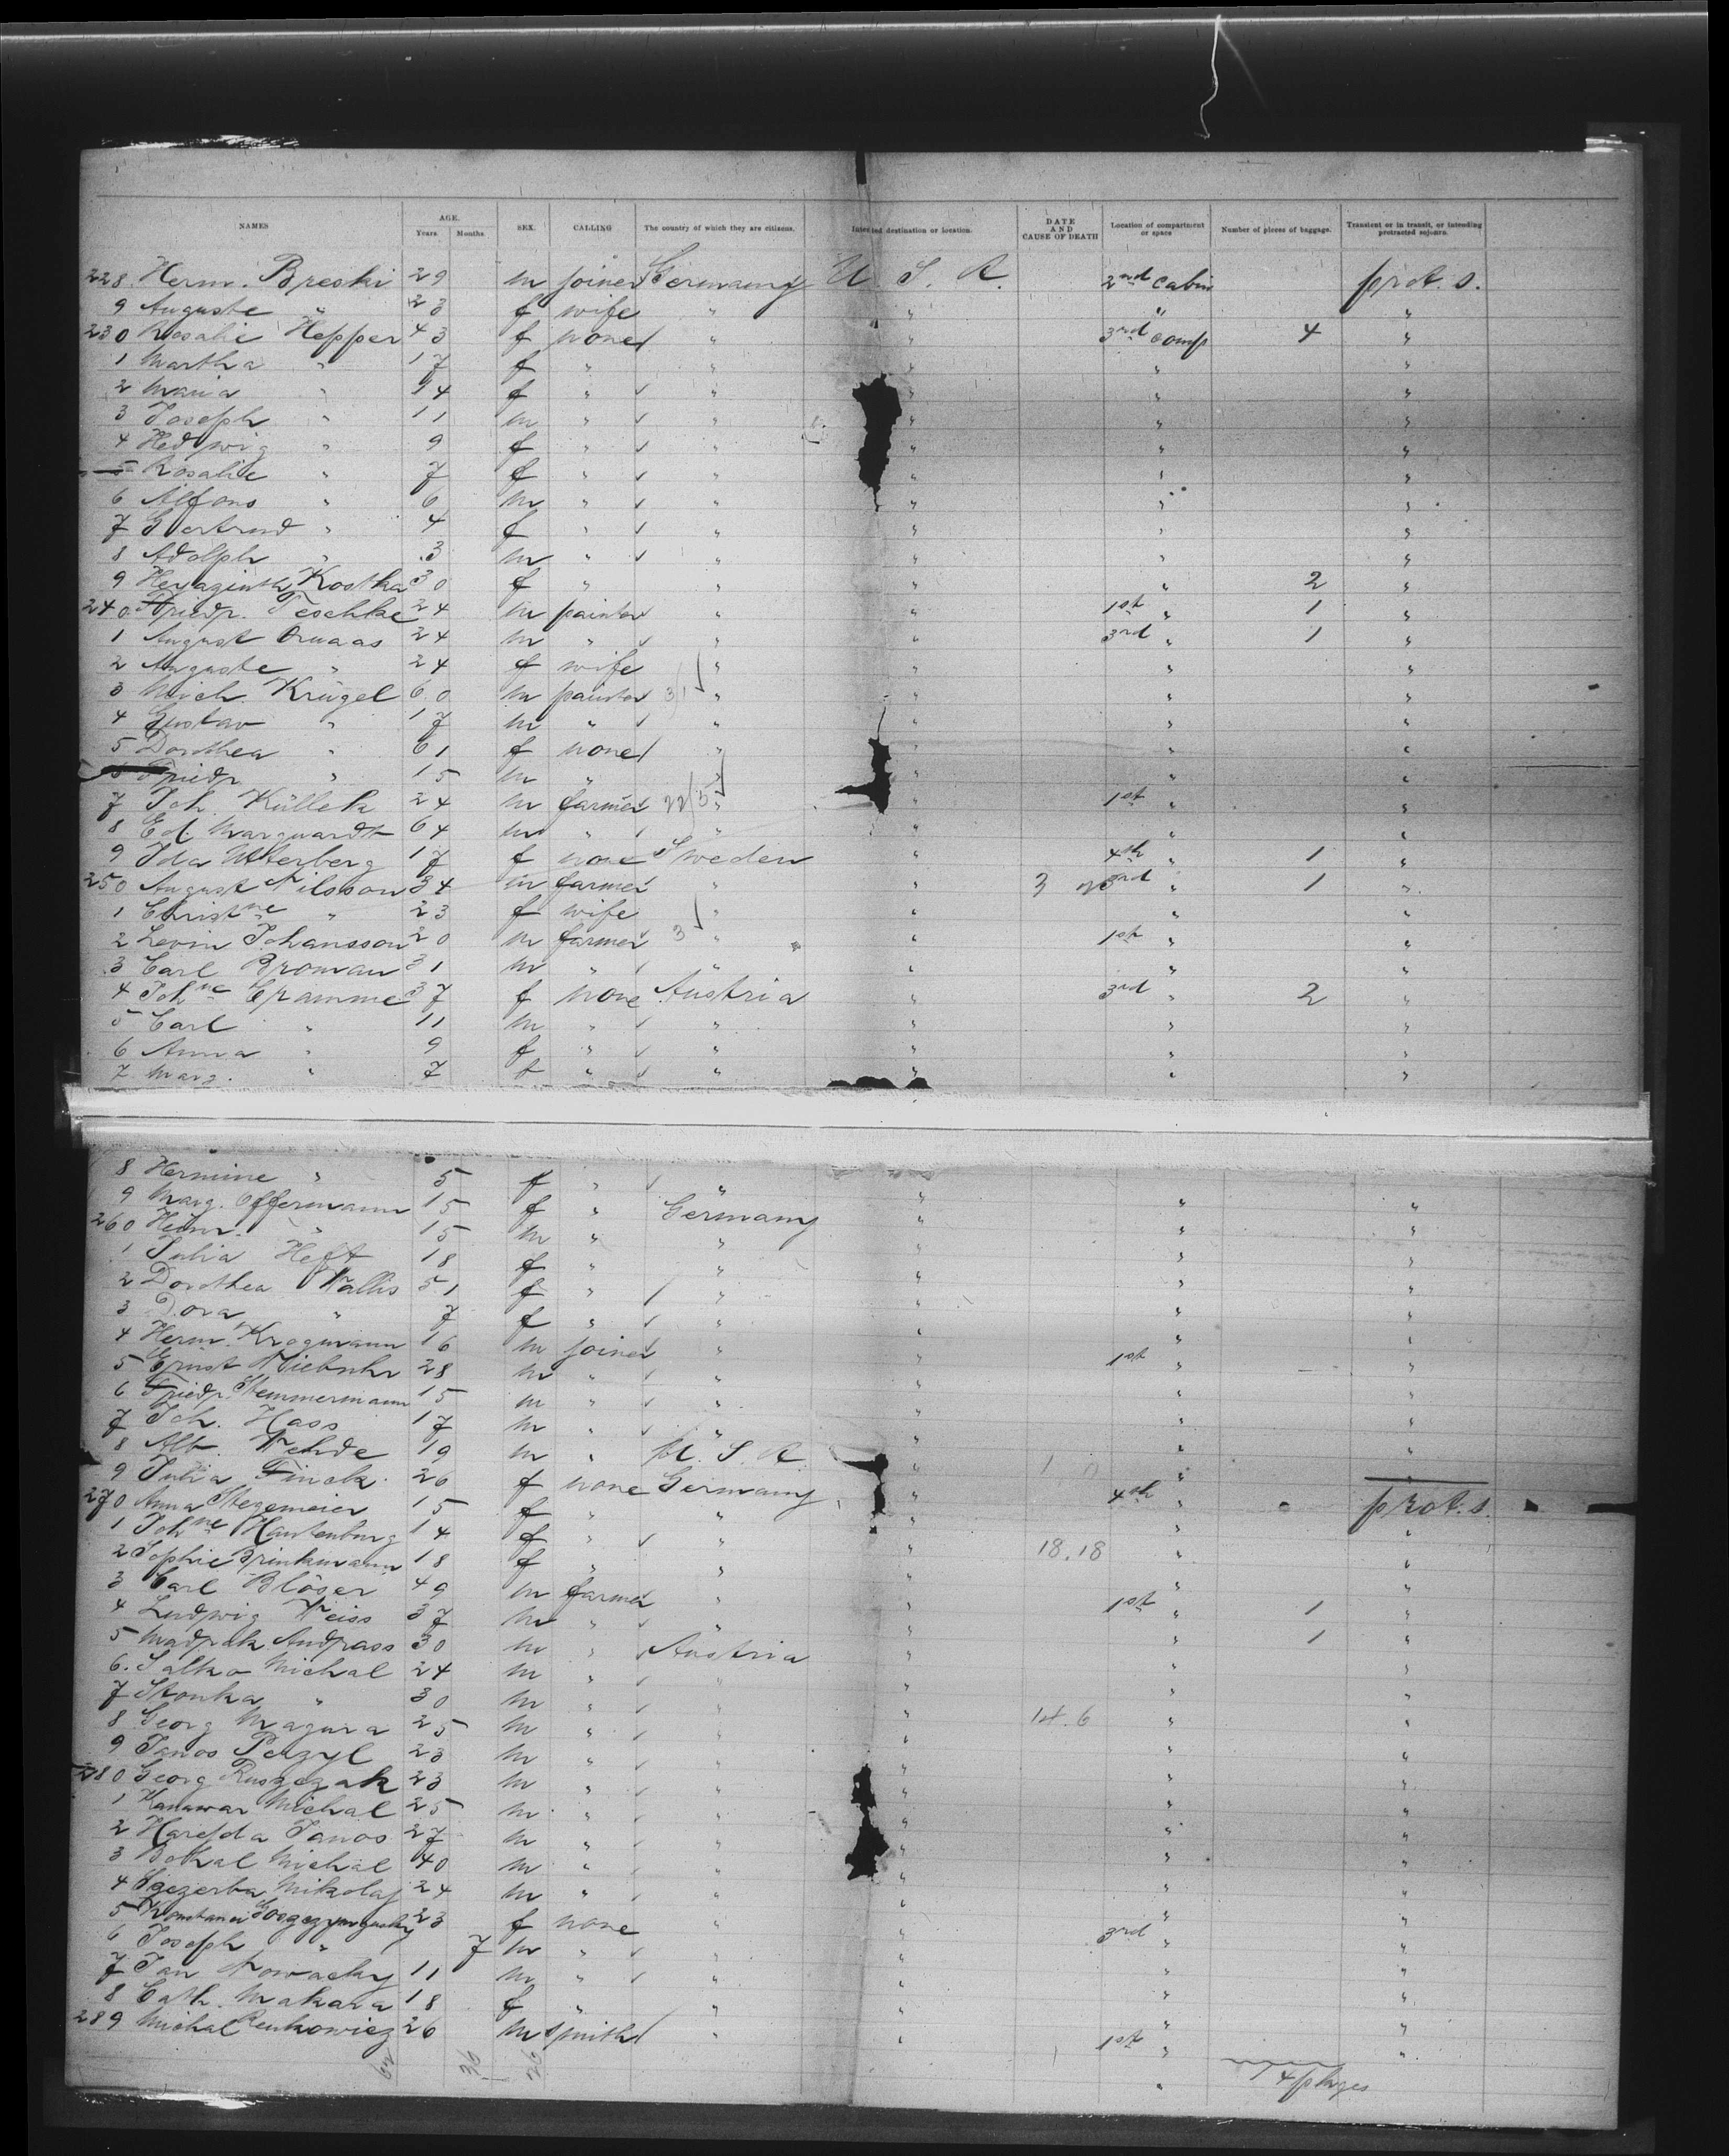 NAMES AGE. Years Months SEX. CALLING The country of which they are citizens. Intended destination or location. DATE AND CAUSE OF DEATH Location of compartment or space Number of pieces of baggage. Transient or in transit, or intending protracted sojourn.
228. Herm. Breski 29 m joiner Germany U. S. A. 2nd cabin prot. s.
9 Auguste " 23 f wife " " " "
230 Rosalie Hepper 43 f none " " 3rd comp 4 "
1 Martha " 17 f " " " " "
2 Maria " 14 f " " " " "
3 Joseph " 11 m " " " " "
4 Hedwig " 9 f " " " " "
5 Rosalie " 7 f " " " " "
6 Alfons " 6 m " " " " "
7 Gertrud " 4 f " " " " "
8 Adolph " 3 m " " " " "
9 Kostka 30 f " " " " 2 "
240 Friedr. Teschke 24 m painter " " 1st " 1 "
1 August 24 m " " " 3rd " 1 "
2 Auguste " 24 f wife " " " "
3 Mich. Krügel 60 m painter 3/1 " " " "
4 Gustav " 17 m " " " " "
5 Dorothea " 61 f none " " " "
6 Friedr " 15 m " " " " "
7 Joh. Küllek 24 m farmer 22/5 " " 1st " "
8 Ed. Marquardt 64 m " " " " "
9 Ida 17 f none Sweden " 4th " 1 "
250 August Nilsson 34 m farmer " " 3 3rd " 1 "
1 Christne " 23 f wife " " " "
2 Levin Johansson 20 m farmer 3 " " 1st " "
3 Carl Broman 31 m " " " " "
4 Johne Cramme 37 f none Austria " 3rd " 2 "
5 Carl " 11 m " " " " "
6 Anna " 9 f " " " " "
7 Marg. " 7 f " " " " "
8 Hermine " 5 f " " " " "
9 Marg. Offermann 15 f " Germany " " "
260 Heinr. " 15 m " " " " "
1 Julia Heft 18 f " " " " "
2 Dorothea Wallis 51 f " " " " "
3 Dora " 7 f " " " " "
4 Herm. Krogmann 16 m joiner " " 1st " "
5 Ernst Niebuhr 28 m " " " " "
6 Friedr. Stemmermann 15 m " " " " "
7 Joh. Hass 17 m " " " " "
8 Alb. Wehde 19 m " U. S. A. " " "
9 Julia Finck 26 f none Germany " 4th " prot. s.
270 Anna Stegemeier 15 f " " " " "
1 Johne Hautenburg 14 f " " " 18.18 " "
2 Sophie Brinkmann 18 f " " " " "
3 Carl Blöser 49 m farmer " " 1st " 1 "
4 Ludwig Weiss 37 m " " " " 1 "
5 Andrass 30 m " Austria " " "
6. Salko Michal 24 m " " " " "
7 Stonka " 30 m " " " 14.6 " "
8 Georg Magura 25 m " " " " "
9 Janos 23 m " " " " "
280 Georg Ruszczak 23 m " " " " "
1 Kanawar Michal 25 m " " " " "
2 Janos 27 m " " " " "
3 Michal 40 m " " " " "
4 Szczerba Mikolaj 24 m " " " " "
5 23 f none " " 3rd " "
6 Joseph " 7 m " " " " "
7 Jan Nowacky 11 m " " " " "
8 Cath. Makara 18 f " " " " "
289 Michal 26 m smith " " 1st " "
62 36 26